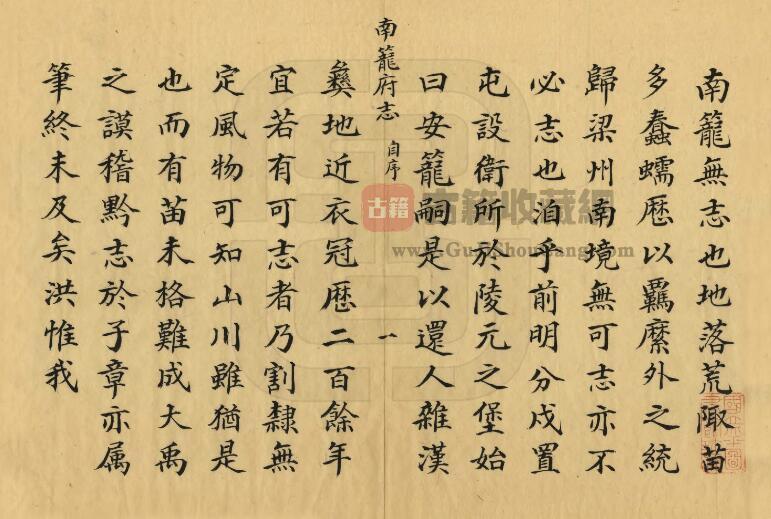 南籠無志也地落荒陬苗
多蠢蠕歷以羈縻外之統
歸梁州南境無可志亦不
必志也洎乎前明分戍置
屯設衛所於陵元之堡始
曰安籠嗣是以還人雜漢
南籠府志 自序 一
彝地近衣冠歷二百餘年
宜若有可志者乃割隸無
定風物可知山川雖猶是
也而有苗未格難成大禹
之謨稽黔志於子章亦属
筆終未及矣洪惟我
古籍 古籍收藏網